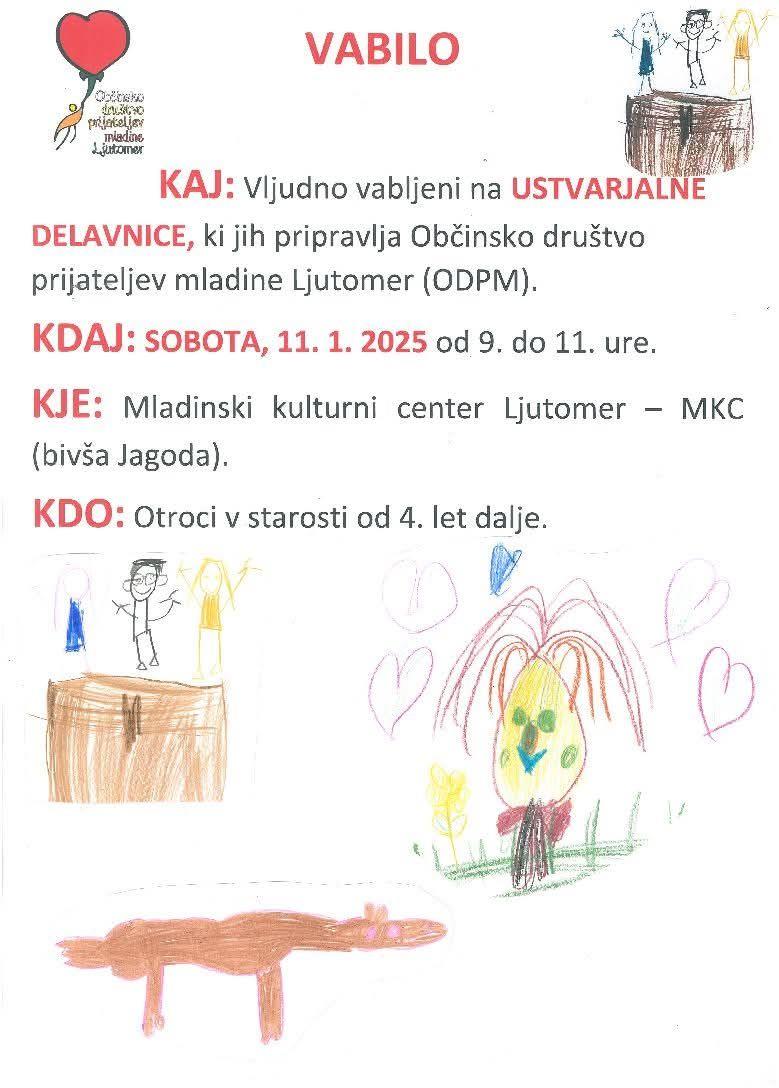 VABILO
Občinsko
društvo
prijateljev
mladine
Ljutomer
KAJ: Vljudno vabljeni na USTVARJALNE
DELAVNICE, ki jih pripravlja Občinsko društvo
prijateljev mladine Ljutomer (ODPM).
KDAJ: SOBOTA, 11. 1. 2025 od 9. do 11. ure.
KJE: Mladinski kulturni center Ljutomer – MKC
(bivša Jagoda).
KDO: Otroci v starosti od 4. let dalje.